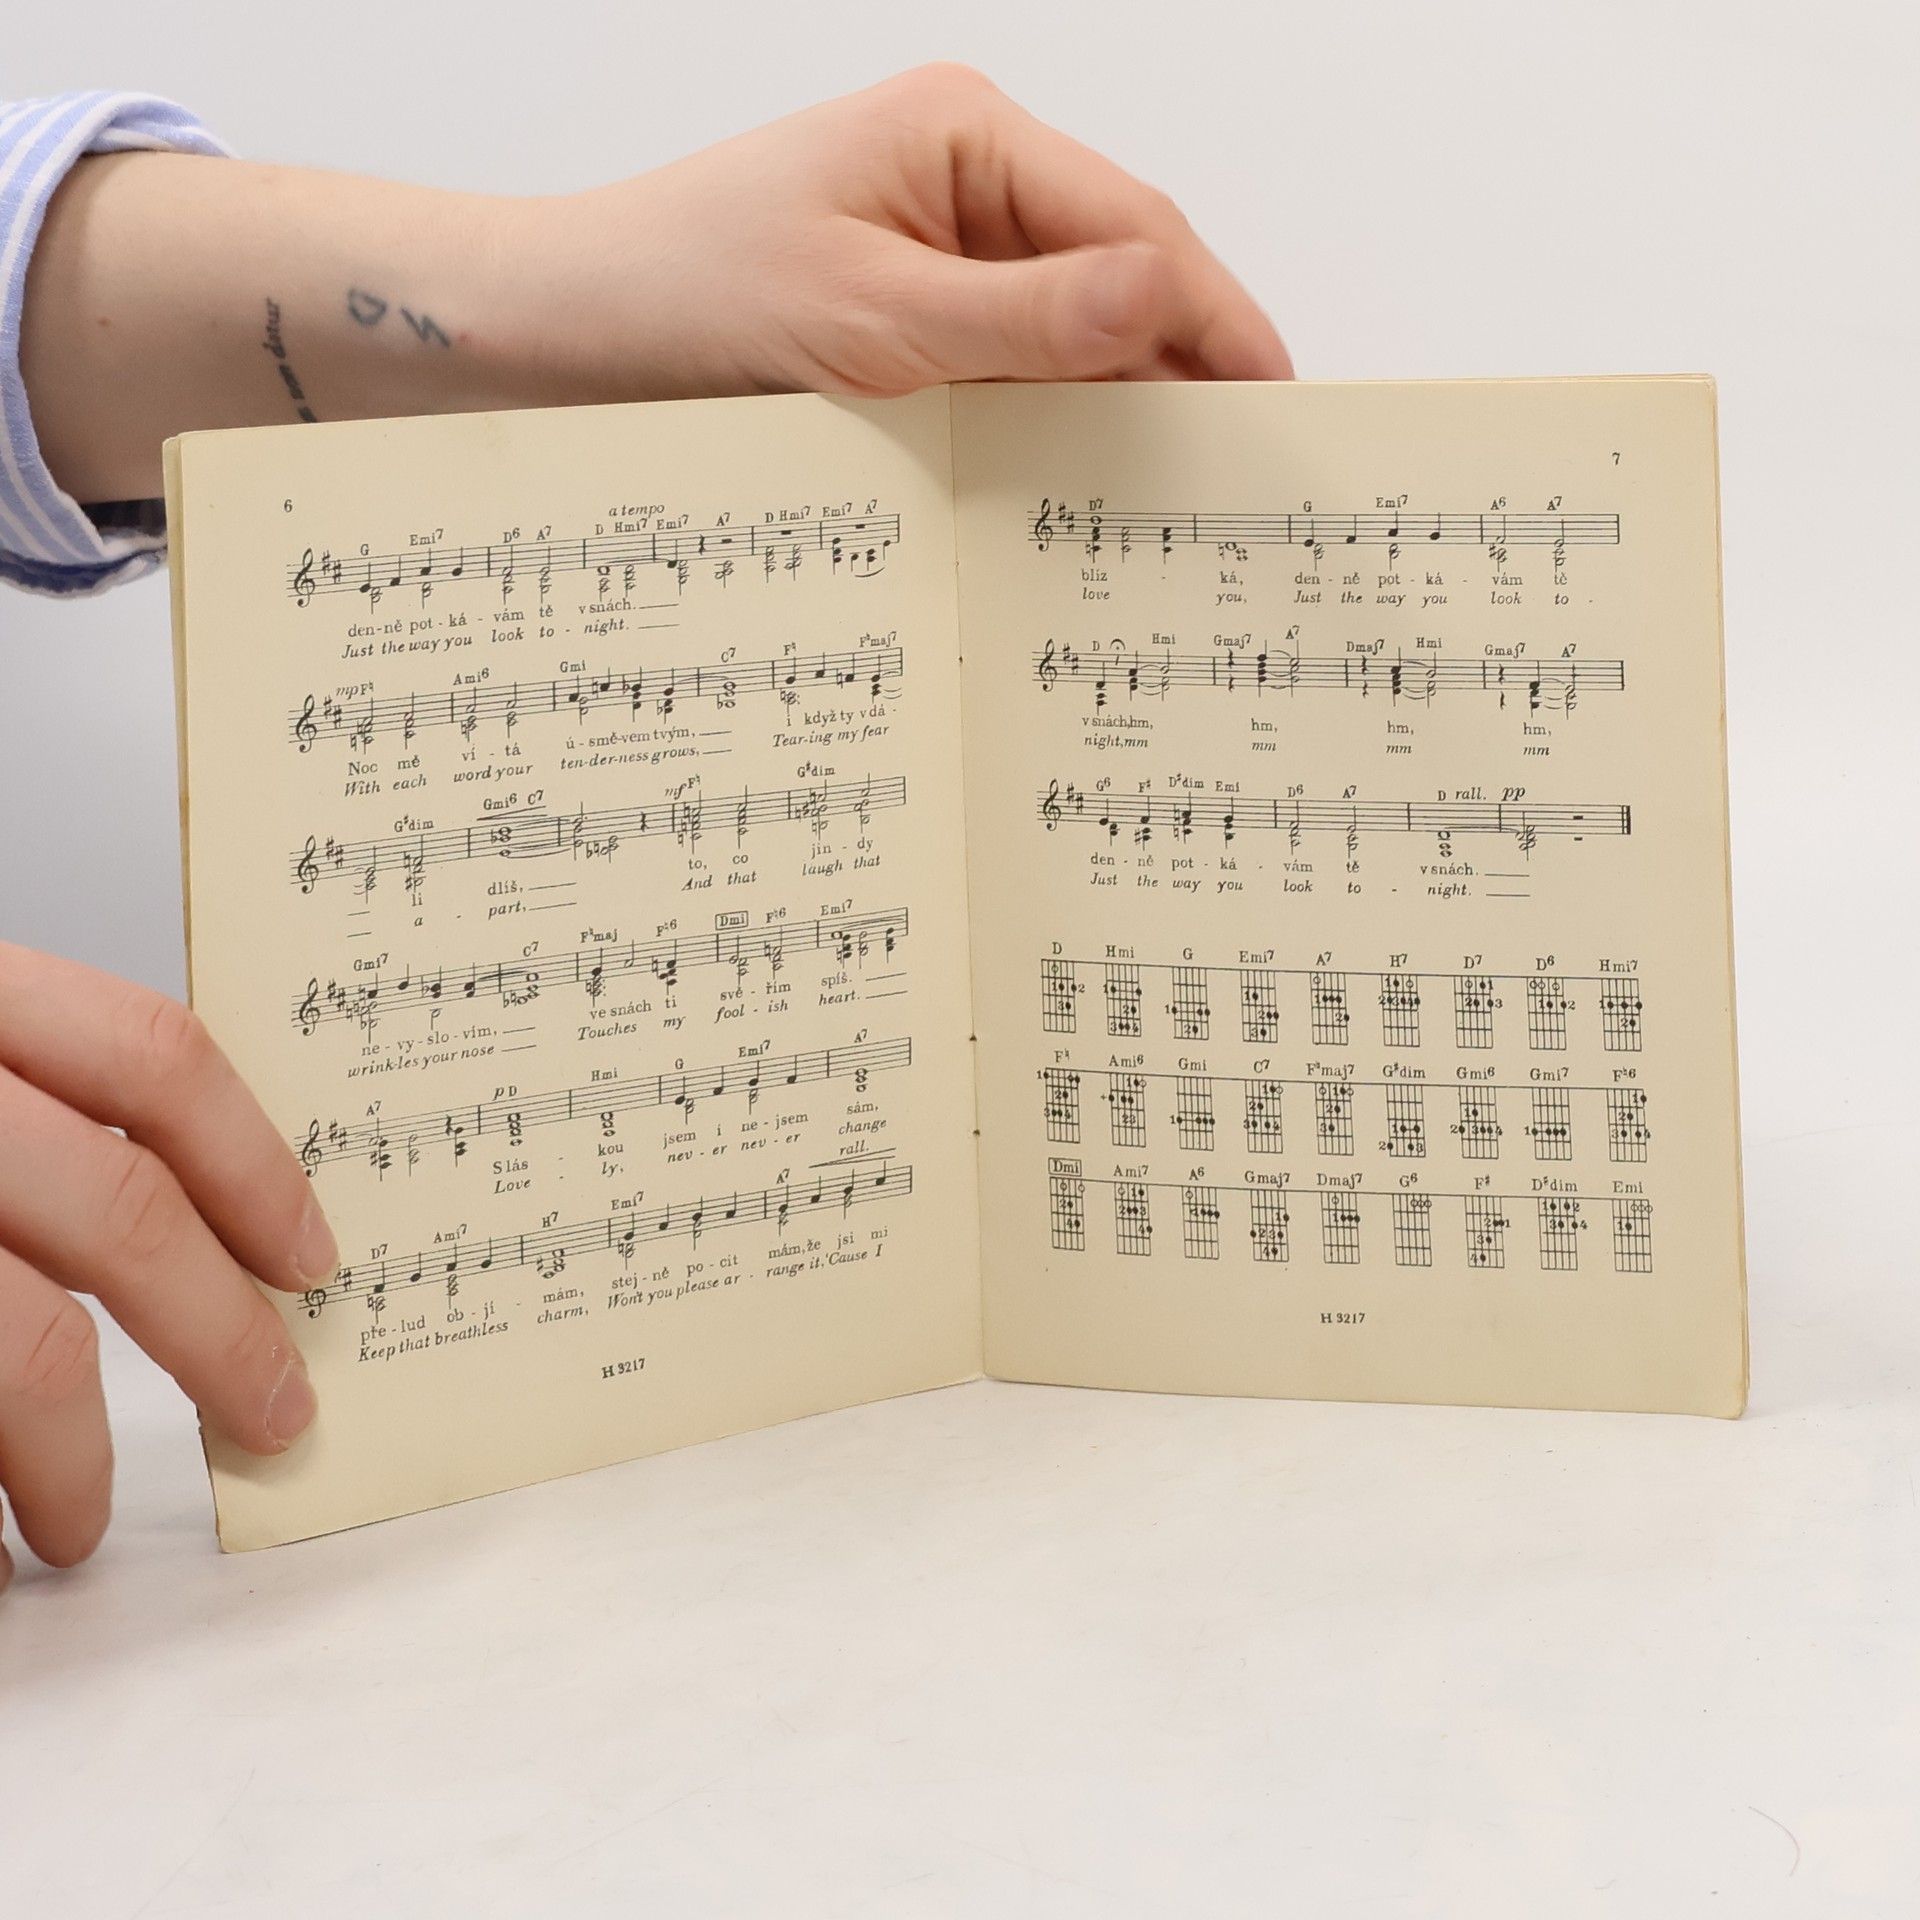 6
a tempo
G Emi7 D6 A7 D Hmi7 Emi7 A7 D Hmi7 Emi7 A7
den-ně pot-ká-vám tě v snách.
Just the way you look to-night.
mp F♮ Ami6 Gmi C7 F♮ F♮maj7
Noc mě ví-tá ú-smě-vem tvým, i když ty v dá-
With each word your ten-der-ness grows, Tear-ing my fear
G♯dim Gmi6 C7 mf F♮ G♯dim
li dlíš, to, co jin-dy
a-part, And that laugh that
Gmi7 C7 F♮maj F♮6 Dmi F♮6 Emi7
ne-vy-slo-vím, ve snách ti svě-řím spíš.
wrink-les your nose Touches my fool-ish heart.
A7 p D Hmi G Emi7 A7
S lás-kou jsem i ne-jsem sám,
Love-ly, nev-er nev-er change
rall.
D7 Ami7 H7 Emi7 A7
pře-lud ob-jí-mám, stej-ně po-cit mám, že jsi mi
Keep that breathless charm, Won't you please ar-range it, 'Cause I
H 3217
7
D7 G Emi7 A6 A7
blíz-ká, den-ně pot-ká-vám tě
love you, Just the way you look to-
D Hmi Gmaj7 A7 Dmaj7 Hmi Gmaj7 A7
v snách, hm, hm, hm, hm,
night, mm mm mm mm
G6 F♯ D♯dim Emi D6 A7 D rall. pp
den-ně pot-ká-vám tě v snách.
Just the way you look to-night.
D Hmi G Emi7 A7 H7 D7 D6 Hmi7
F♮ Ami6 Gmi C7 F♮maj7 G♯dim Gmi6 Gmi7 F♮6
Dmi Ami7 A6 Gmaj7 Dmaj7 G6 F♯ D♯dim Emi
H 3217